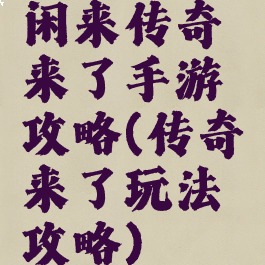 闲来传奇
来了手游
攻略(传奇
来了玩法
攻略)